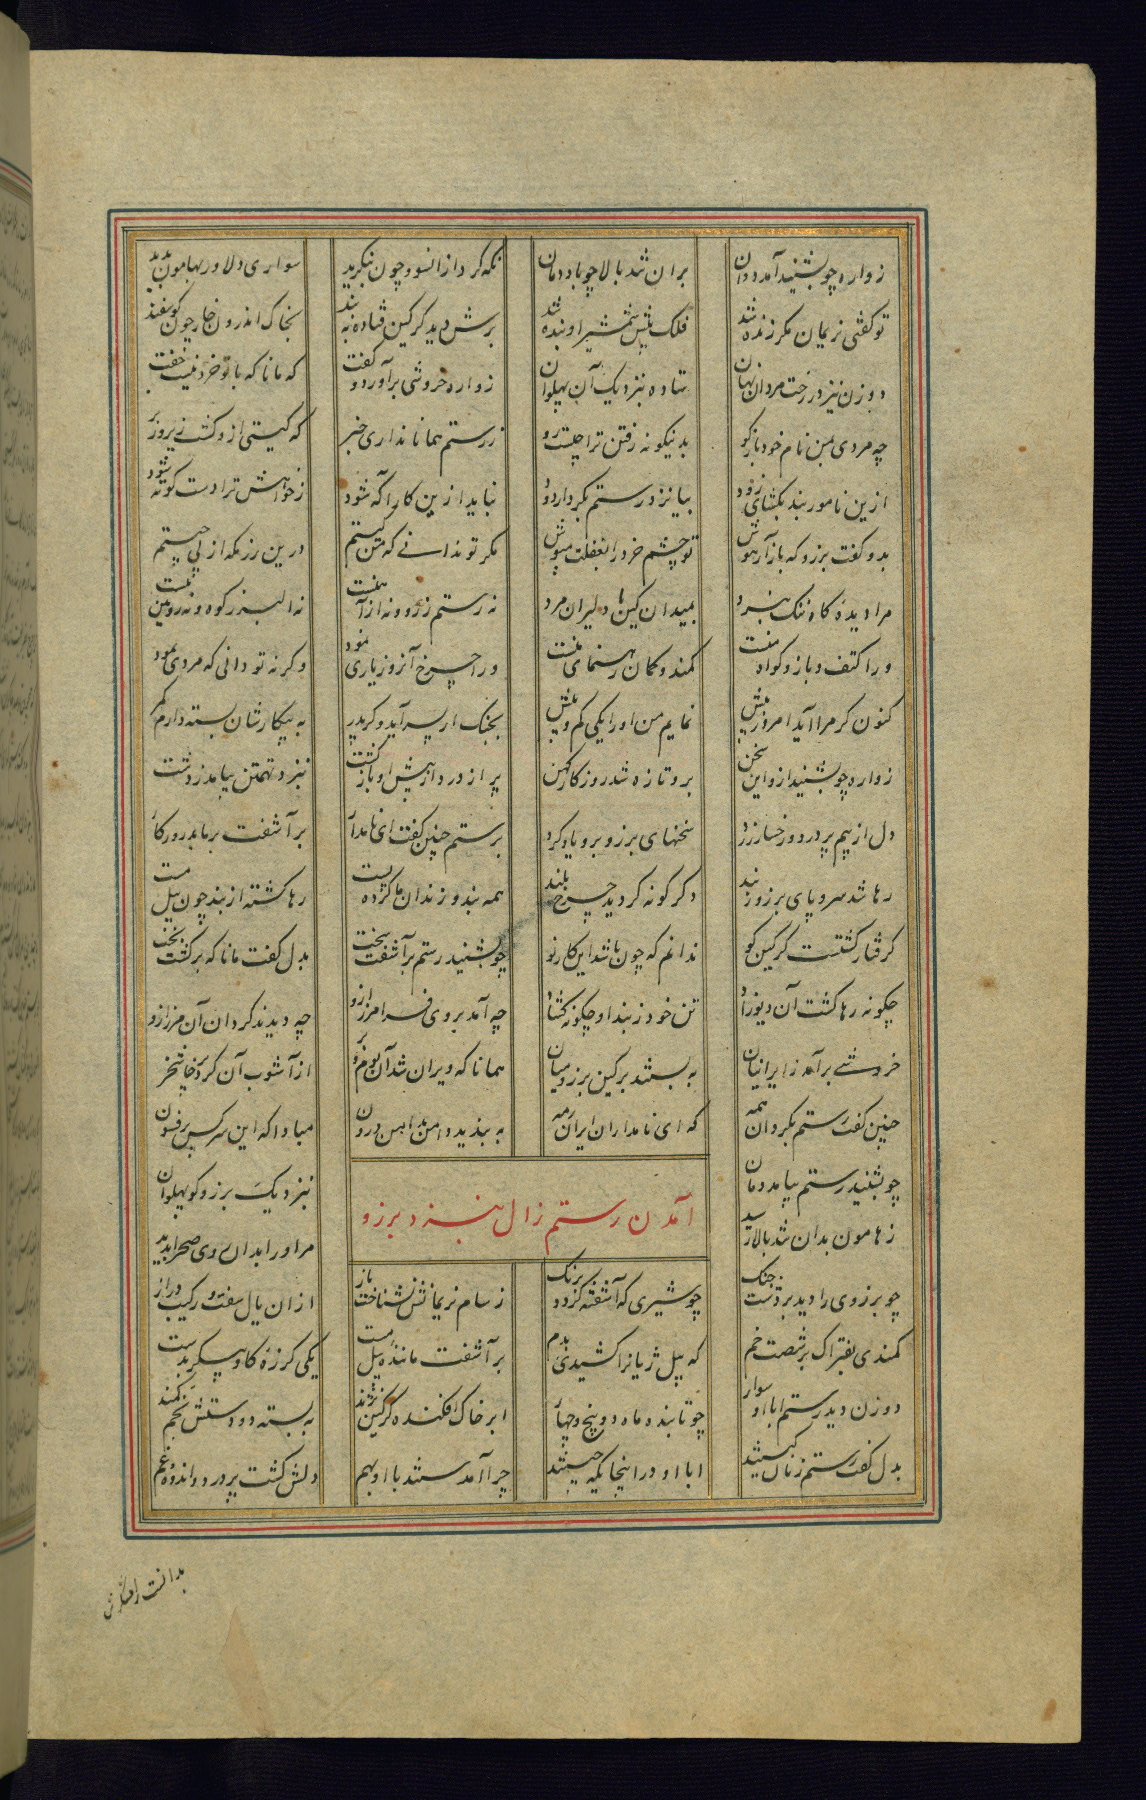 زواره چو بشنید آمد دوان بران شد بالا چو باد دمان نگه کرد از انسو و چون بنگرید سواری دلاور بهامون بدید
تو گفتی نریمان مگر زنده شد فلک پیش شمشیر او بنده شد برش دید گرگین فتاده به بند بخاک اندرون خار چون گوسفند
دو زن نیز در رخت مردان نهان ستاده بنزدیک آن پهلوان زواره خروشی برآورد و گفت که مانا که با تو خرد نیست جفت
چه مردی بمن نام خود بازگو بدینگونه رفتن ترا چیست رو ز رستم همانا نداری خبر که گیتی ازو گشت زیر و زبر
ازین نامور بند بگشای زود بیا نزد رستم بکردار دود نباید ازین کار آگه شود ز خواهش ترا دست کوته شود
بدو گفت برزو که بازآر هوش تو چشم خرد را بغفلت مپوش مگر تو ندانی که من کیستم درین رزمگه از پی چیستم
مرا دیدهٔ گاه ننگ نبرد بمیدان کین با دلیران مرد نه رستم ز روو نه از آهنست نه البرز کوه و نه رویین تنست
ورا کتف و بازو گواه منست کمند و کمان رهنمای منست ورا چرخ آنروز یاری نمود وگرنه تو دانی که مردی نمود
کنون گر مرا آید امروز پیش نمایم من او را یکی کم و بیش بجنگ ار پسر آید و گر پدر به پیکارشان بسته دارم کمر
زواره چو بشنید ازو این سخن برو تازه شد روزگار کهن پر از درد از پیش او بازگشت بنزد تهمتن بیامد ز دشت
دل از بیم پر درد و رخسار زرد سخنهای برزو برو یاد کرد برستم چنین گفت ای نامدار برآشفت بر ما بد روزگار
رها شد سر و پای برزو ز بند دگرگونه گردید چرخ بلند همه بند و زندان ما کرده پست رها گشته از بند چون پیل مست
گرفتار گشتست گرگین گو ندانم که چون باشد این کار نو چو بشنید رستم برآشفت سخت بدل گفت مانا که برگشت بخت
چگونه رها گشت آن دیوزاد تن خود ز بند او چگونه گشاد چه آمد بروی فرامرز ازو چه دیدند گردان آن مرز ازو
خروشی برآمد ز ایرانیان به بستند بر کین برزو میان همانا که ویران شد آن بوم و بر از آشوب آن گرد خاشخر
چنین گفت رستم بگردان همه که ای نامداران ایران رمه به بندید دامن بدامن درون مبادا که این سرکش پر فسون
چو بشنید رستم بیامد دمان بنزدیک برزو گو پهلوان
آمدن رستم زال بنبرد برزو
ز هامون بدان شد بالا رسید مر او را بدان روی صحرا بدید
چو برزوی را دید بر دشت جنگ چو شیری که آشفته گردد برنگ ز سام نریمانش نشناخت باز ازان یال و سفت و رکیب دراز
کمندی بفتراک بر شصت خم که پیل ژیانرا کشیدی بدم برآشفت مانندهٔ پیل مست یکی گرزهٔ گاو پیکر بدست
دو زن دید رستم ابا او سوار چو تابنده ماه دو پنج و چهار ابر خاک افکنده گرگین نژند به بسته دو دستش بخم کمند
بدل گفت رستم زنان کیستند ابا او درا اینجایگه چیستند چرا آمدستند با او بهم دلش گشت پر درد و اندوه و غم
بدانست